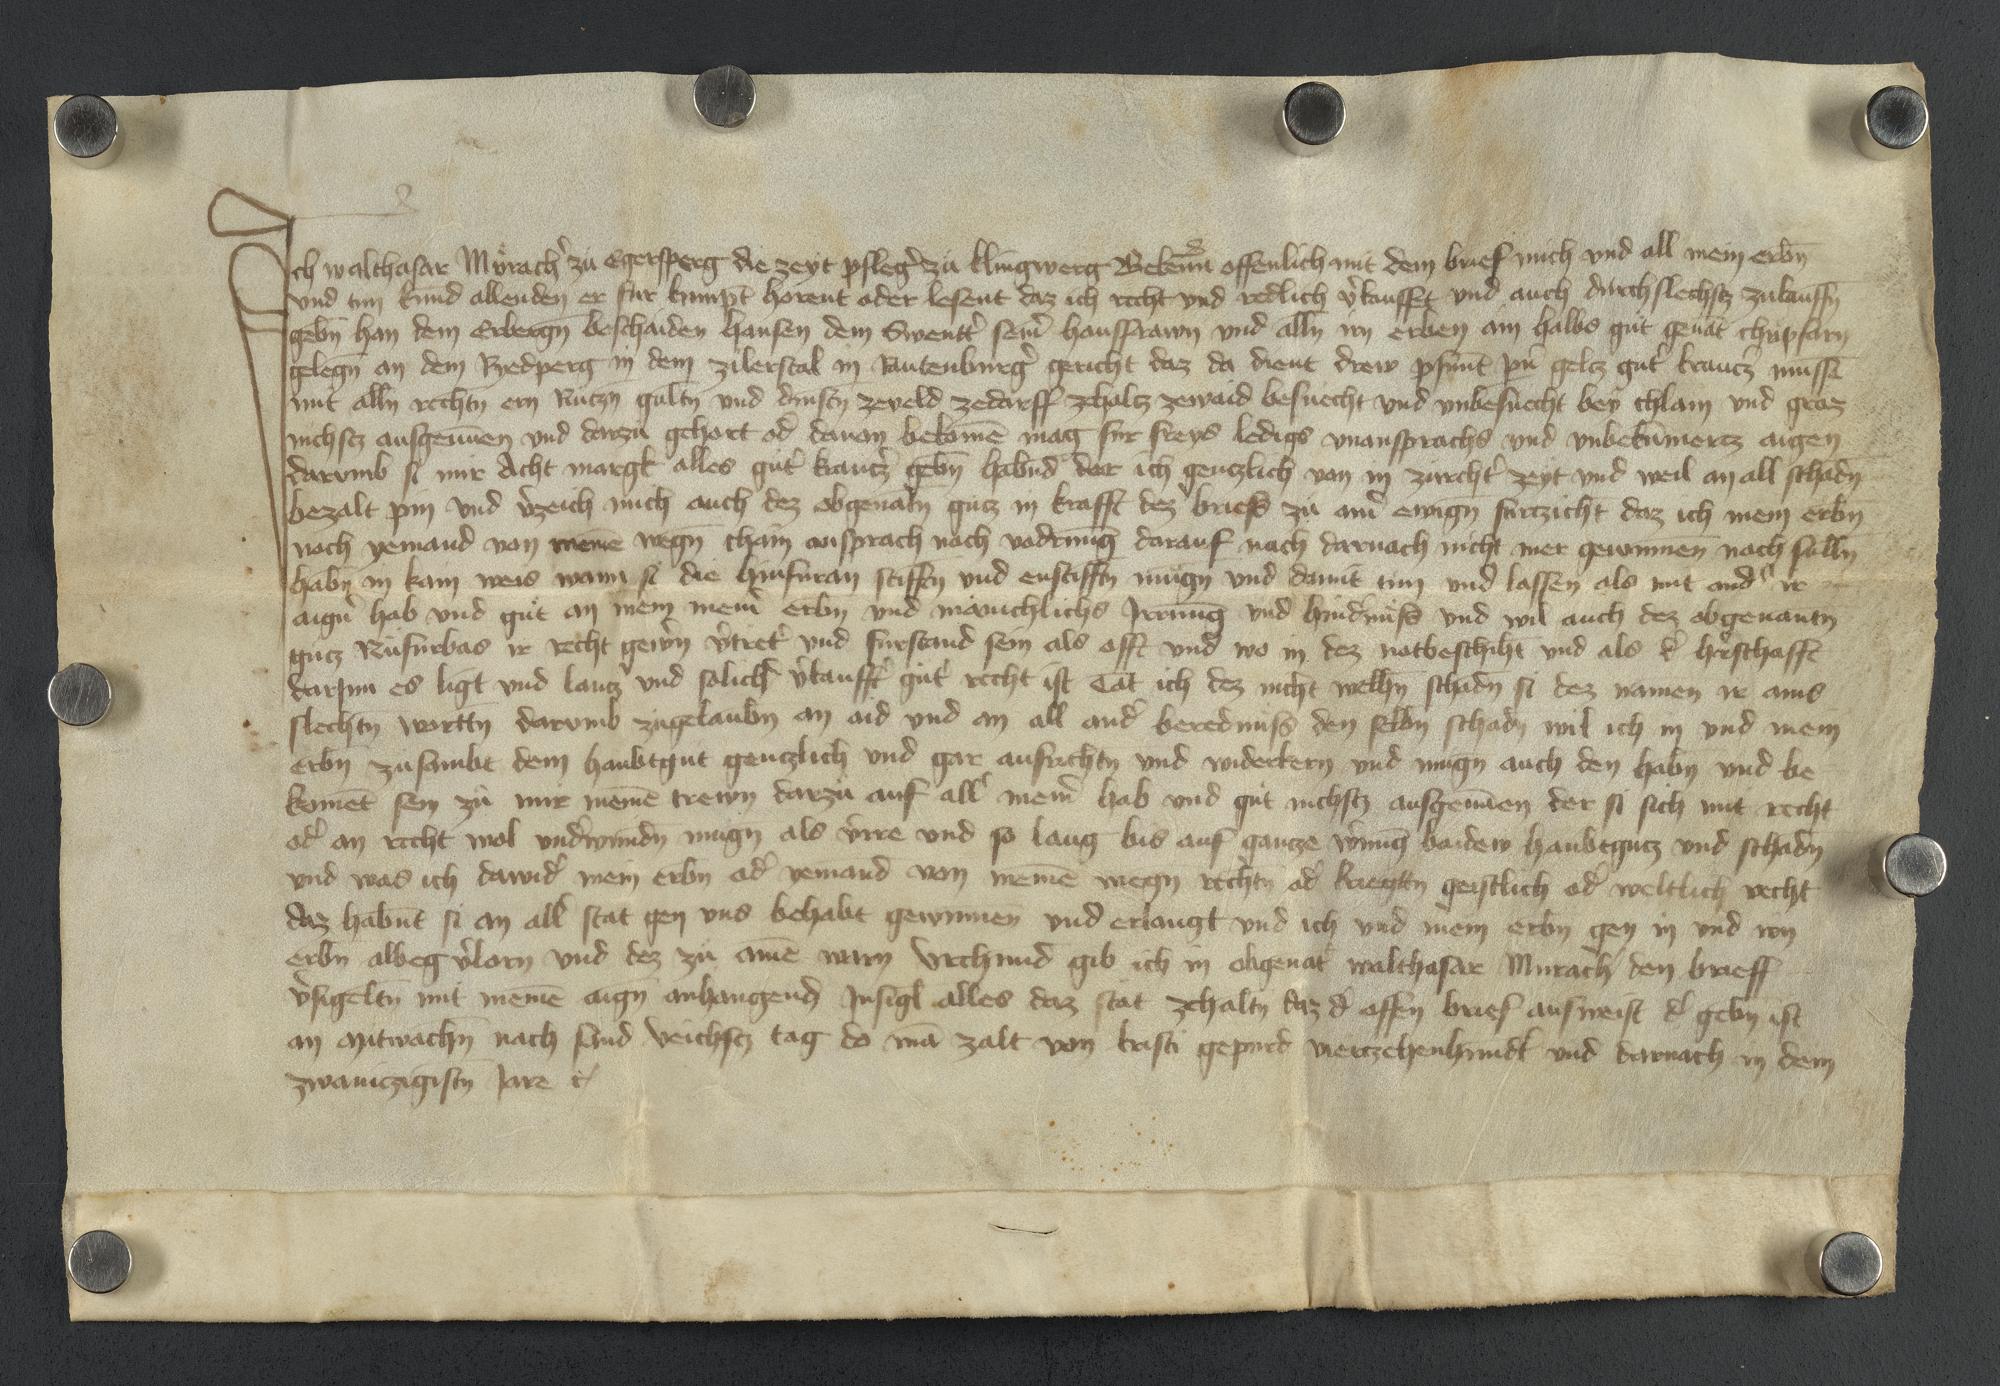 Ich walthasar Mŭracher zu Egersperg die zeyt pfleger zu klingwerg Bekenn offenlich mit dem brief mich vnd all mein erbn̄
vnd tun kund allen den er fur kumpt horent oder lesent daz ich recht vnd redlich v̓kaufft vnd auch durchslechtz zukauffn̄
gebn̄ han dem Erbergn̄ beschaiden hansen dem Swentt̓ sein̓ hausfrawn vnd alln irn erben ain halbs gut genāt chripfarn
gelegn̄ an dem Ryedperg in dem zilerstal in Rautenburg̓ gericht daz da dient drew pfunt pn̓ geltz gut̓ krautz̓ muss
mit alln rechtn ern Nutzn gultn vnd dinstn zeveld zedorff zholtz zewaid besuecht vnd vnbesuecht bey chlain vnd groz
nichstz ausgenūmen vnd darzu gehort od̓ dauon bekomē mag fur freys ledigs vnansprachs vnd vnbekūmertz aigen
darvmb si mir Acht margk alles gut̓ krautz̓ gebn̄ habnd der ich gentzlich von in zurecht̓ zeyt vnd weil an all schadn̄
bezalt pin vnd v̓zeich mich auch dez obgenātn gutz in krafft dez briefs zu ain̓ ewign̄ furtzicht daz ich mein erbn̄
noch yemand von meinē wegn̄ chain ansprach noch vodrūng darauf noch darnach nicht mer gewinnen noch sulln̄
habn̄ in kain weis wann si die hinfuran stifftn vnd enstifftn mugn̄ vnd damit tun vnd lassen als mit and̓ ir
aign̓ hab vnd gut an mein mein̓ erbn̄ vnd mānichlichs Irrūng vnd hindnuss vnd wil auch dez obgenantn
gutz Nufurbas ir recht gewern v̓tret̓ vnd furstand sein als offt vnd wo in dez notbeschiht vnd als d̓ h̓rschafft
darInn es ligt vnd lantz vnd solich̓ v̓kaufft̓ gut̓ recht ist Tāt ich dez nicht welhn̄ schadn si dez namen ir ains
slechtn̄ worttn̄ darvmb zugelaubn an aid vnd an all and̓ berednuss den selbn̄ schadn̄ wil ich in vnd mein
erbn̄ zusambt dem haubtgut gentzlich vnd gar ausrichtn vnd widerkern vnd mugn̄ auch den habn̄ vnd be
komēt sein zu mir meinē trewn darzu auf all mein̓ hab vnd gut nichstz ausgenūmen der si sich mit recht
od̓ an recht wol vnd̓windn mugn̄ als v̓rre vnd so lang bis auf gantze w̓rung baidew haubtgutz vnd schadn̄
vnd was ich dawid̓ mein erbn̄ od̓ yemand von meinē wegn̄ rechtn od̓ kriegttn geistlich od̓ weltlich recht
daz habnt si an all stat gen vns behabt gewinnen vnd erlangt vnd ich vnd mein erbn̄ gen in vnd irn
erbn̄ albeg v̓lorn vnd dez zu ainē warn vrchund gib ich in obgenāt̓ walthasar Murach̓ den brieff
v̓sigeltn mit meinē aign̄ anhangend̓ Insigl alles daz stāt zehaltn daz d̓ offen brief ausweist d̓ gebn̄ ist
an Mitwochn̄ nach sand veichstz tag do mā zalt von kristi gepurd viertzehenhundt̓ vnd darnach in dem
zwaintzigistn̄ Jare ꝛc̓